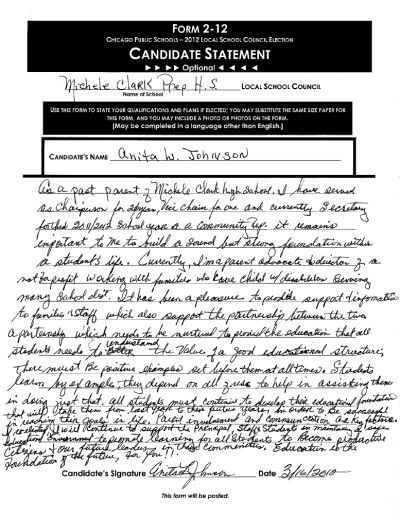 FORM 2-12
CHICAGO PUBLIC SCHOOLS – 2012 LOCAL SCHOOL COUNCIL ELECTION
CANDIDATE STATEMENT
► ► ► ► Optional ◄ ◄ ◄ ◄
Michele Clark Prep H.S. LOCAL SCHOOL COUNCIL
Name of School
USE THIS FORM TO STATE YOUR QUALIFICATIONS AND PLANS IF ELECTED; YOU MAY SUBSTITUTE THE SAME SIZE PAPER FOR
THIS FORM, AND YOU MAY INCLUDE A PHOTO OR PHOTOS ON THE FORM.
[May be completed in a language other than English.]
CANDIDATE'S NAME Anita W. Johnson
As a past parent of Michele Clark high School, I have served
as Chairperson for Vice Chair for one and currently Secretary
for the 2011/2012 School year as a community rep. it remains
important to me to build a sound but strong foundation within
a student's life. Currently, I'm a parent advocate & director of a
not for profit working with families who have child w/ disabilities serving
many School dist. It has been a pleasure to provide support & information
to families & staff which also support the partnership between the two
a partnership which needs to be nurtured to provide the education that all
students needs to understand the Values of a good educational structure,
There must be positive examples set before them at all times. Students
learn by example, they depend on all of us to help in assisting them
in doing just that. all students must continue to develop their educational foundation
that will take them from last year to their future years in order to be successful
in reaching their goals in life. Parent involvement and communication are key factors.
I will continue to support the Principal, Staff, Students in maintain a safe
Education Environment to promote learning for all Students to become productive
Citizens & our future leaders in their communities. Education is the
Foundation of the future, for You!!
Candidate's Signature Anita W Johnson Date 3/16/2010
This form will be posted.